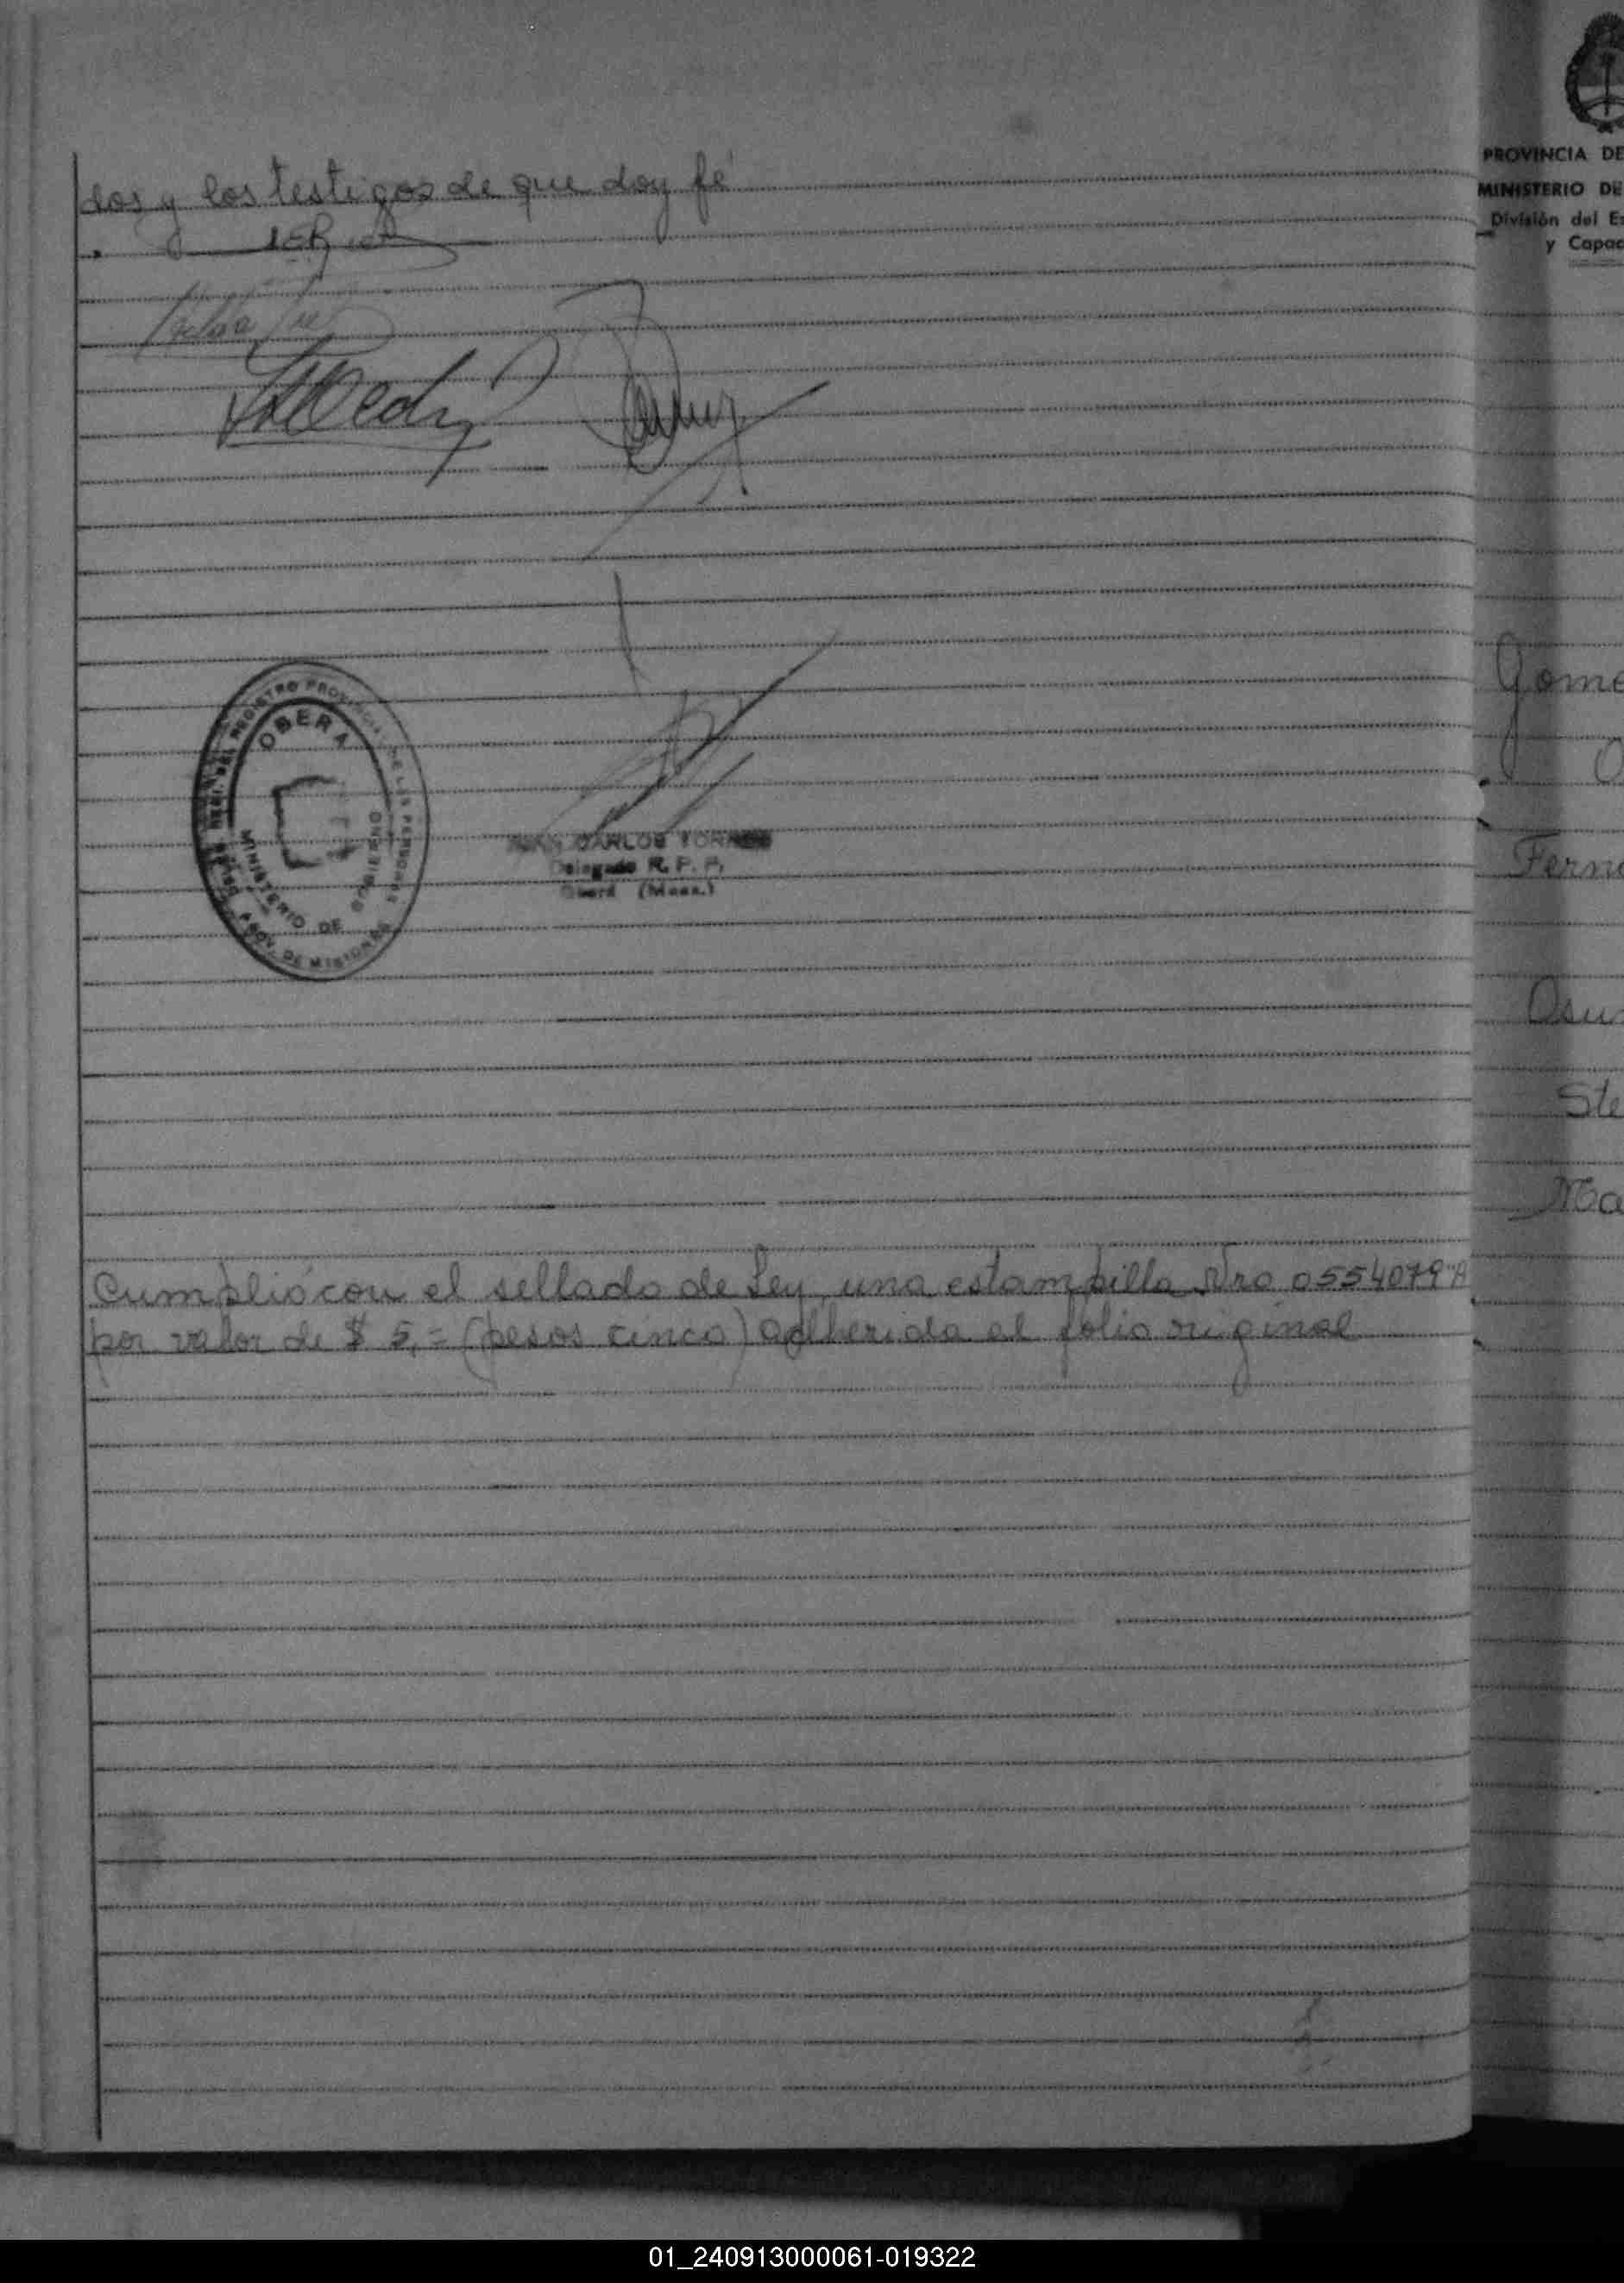 dos y los testigos de que doy fé
OBERA
MINISTERIO DE GOBIERNO
PROV. DE MISIONES
JUAN CARLOS TORRES
Delegado R. P. P.
Oberá (Mnes.)
Cumplió con el sellado de Ley, una estampilla Nro 0554079 "A
por valor de $ 5,= (pesos cinco) adherida al folio original
PROVINCIA DE
MINISTERIO DE
División del Es
y Capac
Gome
Ferna
Osu
Ste
Ma
01_240913000061-019322